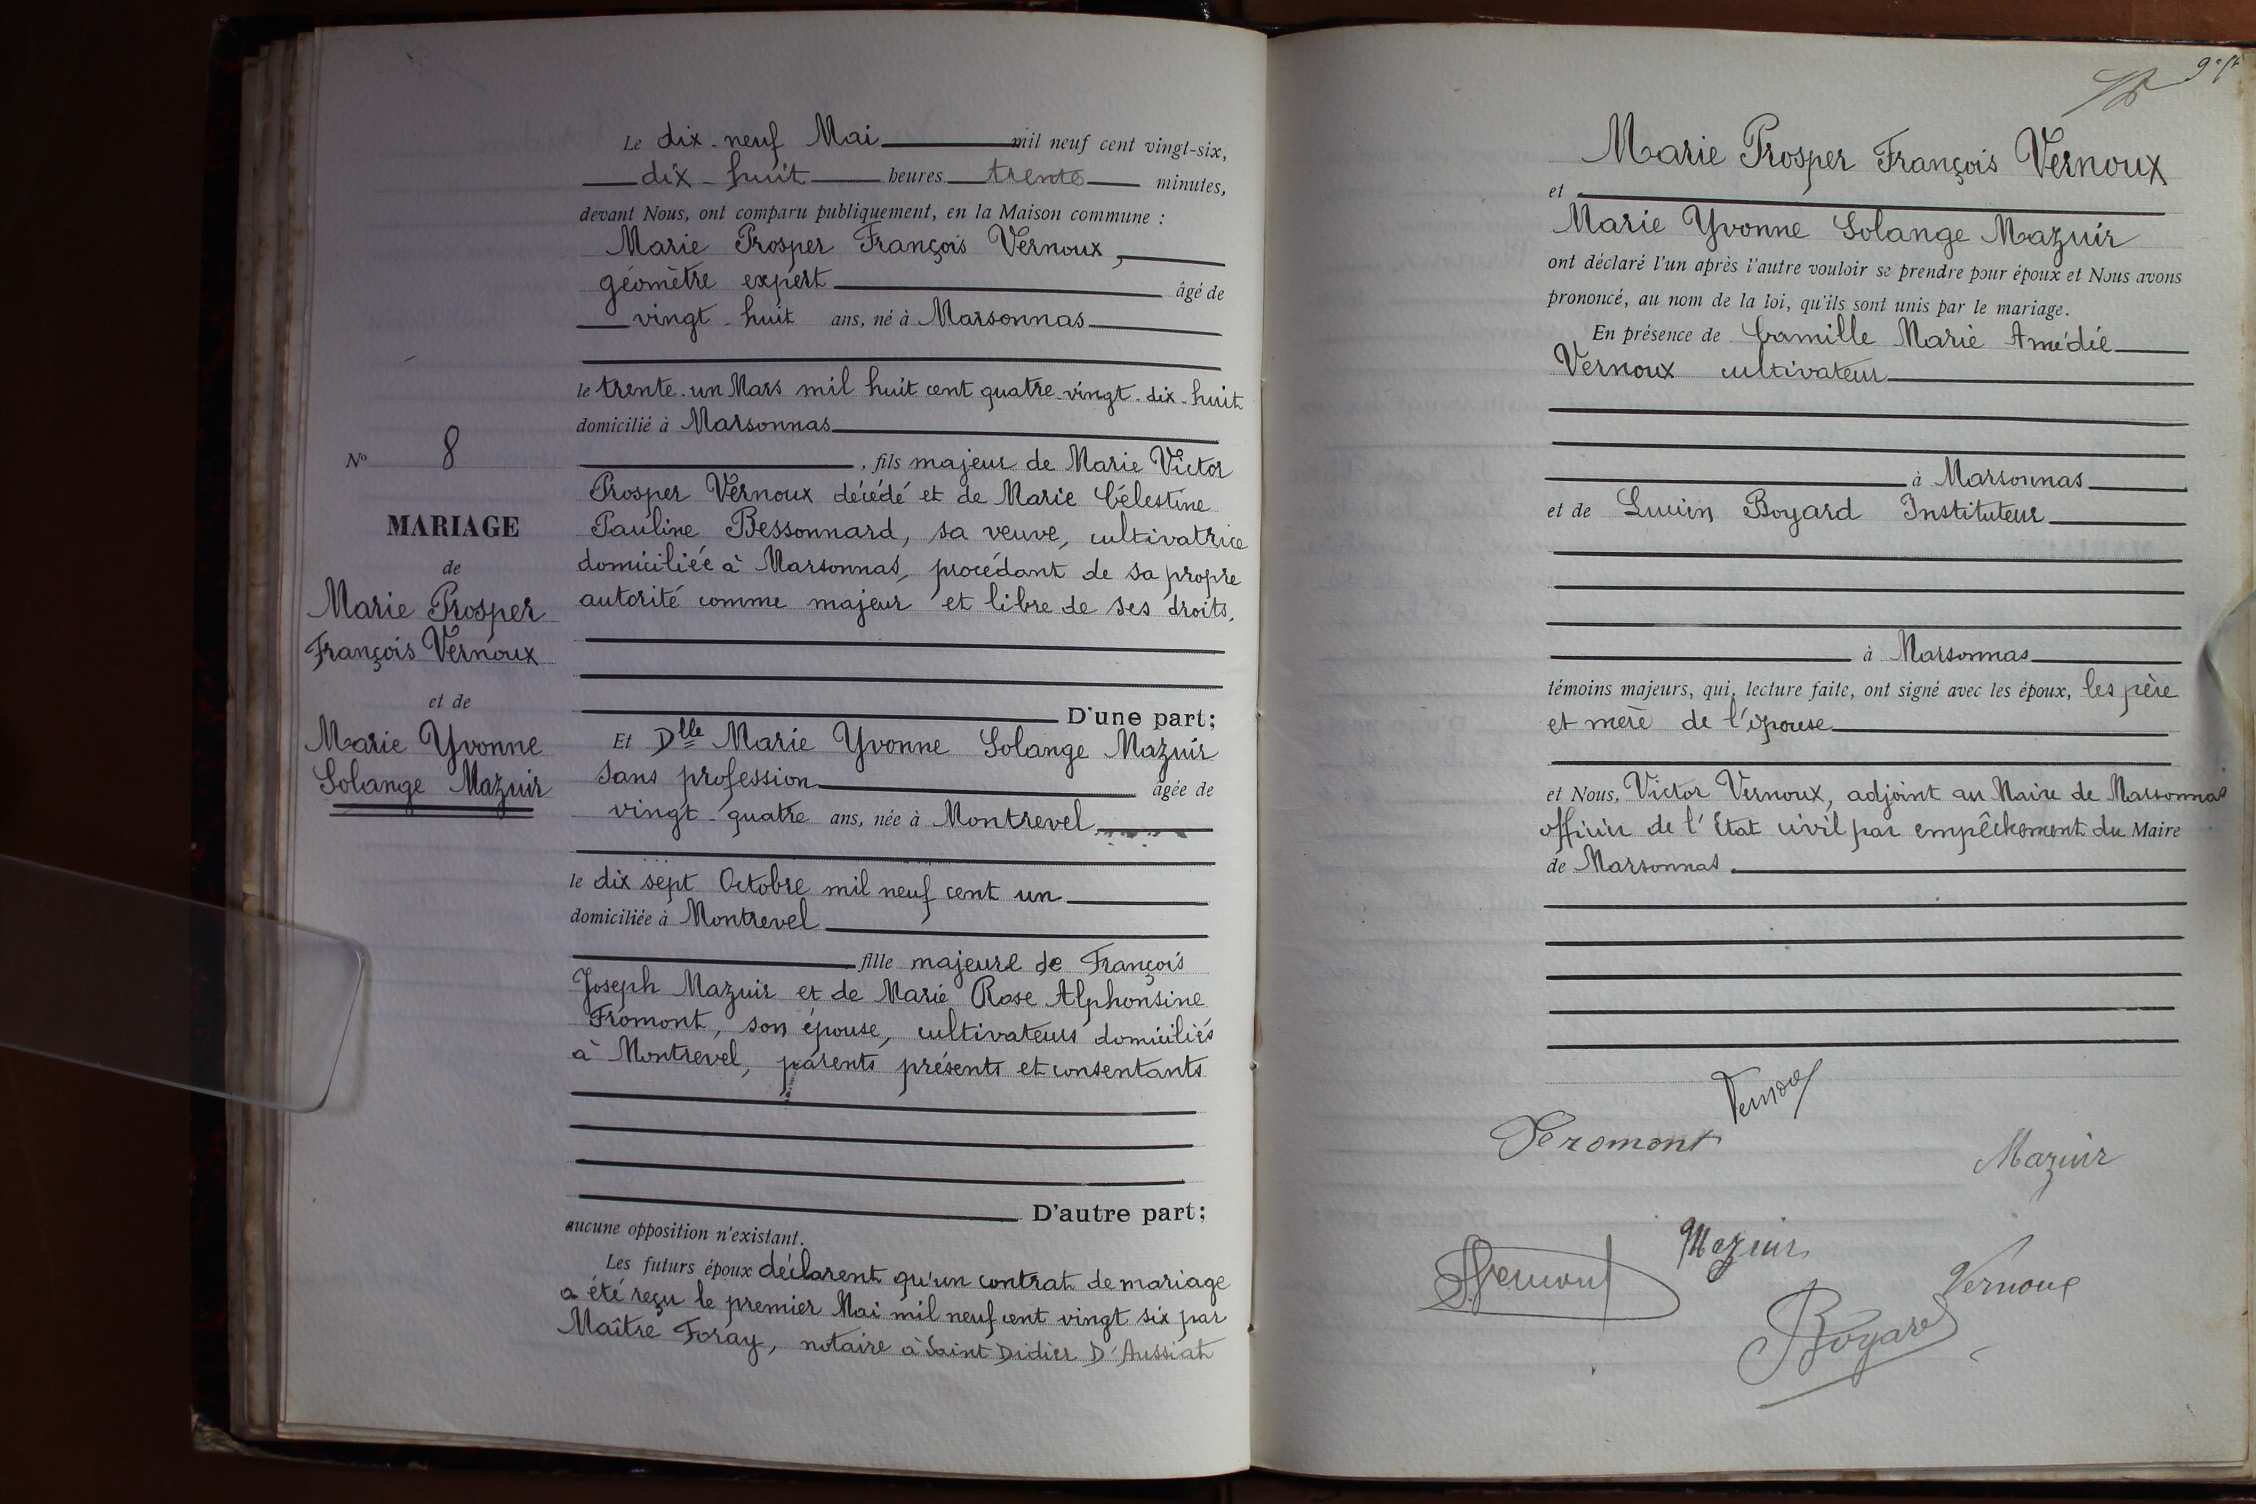 Le dix-neuf Mai mil neuf cent vingt-six,
dix-huit heures trente minutes,
devant Nous, ont comparu publiquement, en la Maison commune :
Marie Prosper François Vernoux,
géomètre expert âgé de
vingt-huit ans, né à Marsonnas
le trente-un Mars mil huit cent quatre-vingt-dix-huit
domicilié à Marsonnas
, fils majeur de Marie Victor
Prosper Vernoux décédé et de Marie Célestine
Pauline Bessonnard, sa veuve, cultivatrice
domiciliée à Marsonnas, procédant de sa propre
autorité comme majeur et libre de ses droits.
D'une part;
N° 8
MARIAGE
de
Marie Prosper
François Vernoux
et de
Marie Yvonne
Solange Mazuir
Et Dlle Marie Yvonne Solange Mazuir
sans profession âgée de
vingt-quatre ans, née à Montrevel
le dix sept Octobre mil neuf cent un
domiciliée à Montrevel
fille majeure de François
Joseph Mazuir et de Marie Rose Alphonsine
Fromont, son épouse, cultivateurs domiciliés
à Montrevel, parents présents et consentants
D'autre part;
aucune opposition n'existant.
Les futurs époux déclarent qu'un contrat de mariage
a été reçu le premier Mai mil neuf cent vingt six par
Maître Foray, notaire à Saint Didier D'Aussiat
Marie Prosper François Vernoux
et
Marie Yvonne Solange Mazuir
ont déclaré l'un après l'autre vouloir se prendre pour époux et Nous avons
prononcé, au nom de la loi, qu'ils sont unis par le mariage.
En présence de Camille Marie Amédée
Vernoux cultivateur
à Marsonnas
et de Lucien Boyard Instituteur
à Marsonnas
témoins majeurs, qui, lecture faite, ont signé avec les époux, les père
et mère de l'épouse
et Nous, Victor Vernoux, adjoint au Maire de Marsonnas
officier de l'Etat civil par empêchement du Maire
de Marsonnas.
Vernoux
Feromont
Mazuir
Mazuir
Vernoux
Boyard